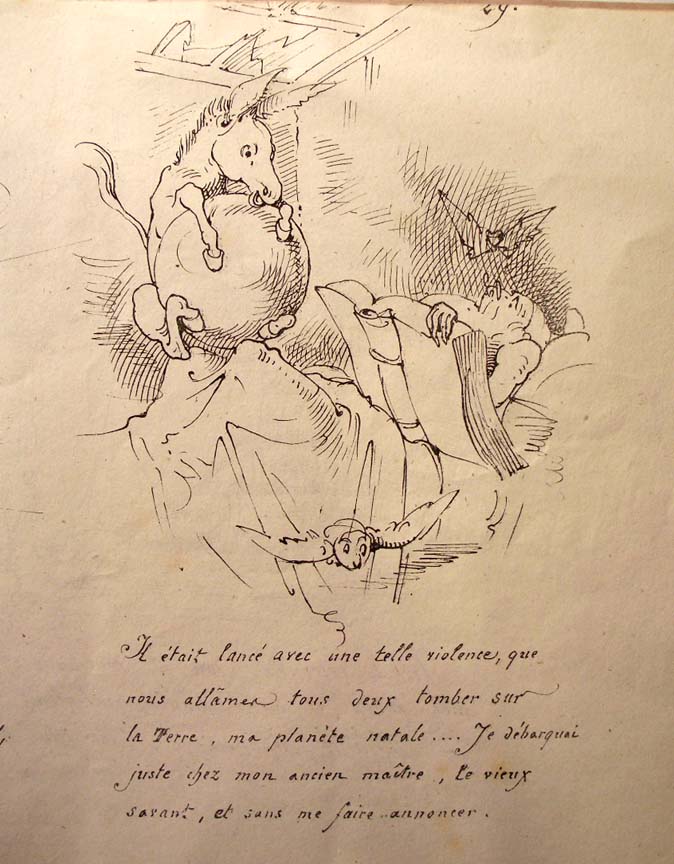 29.
Il était lancé avec une telle violence, que
nous allâmes tous deux tomber sur
la Terre, ma planète natale.... Je débarquai
juste chez mon ancien maître, le vieux
savant, et sans me faire annoncer.